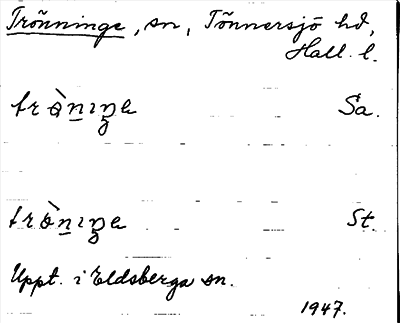 Trönninge, sn, Tönnersjö hd,
Hall. l.
trò̱nıŋe Sa.
trò̱nıŋe St.
Uppt. i Eldsberga sn.
1947.